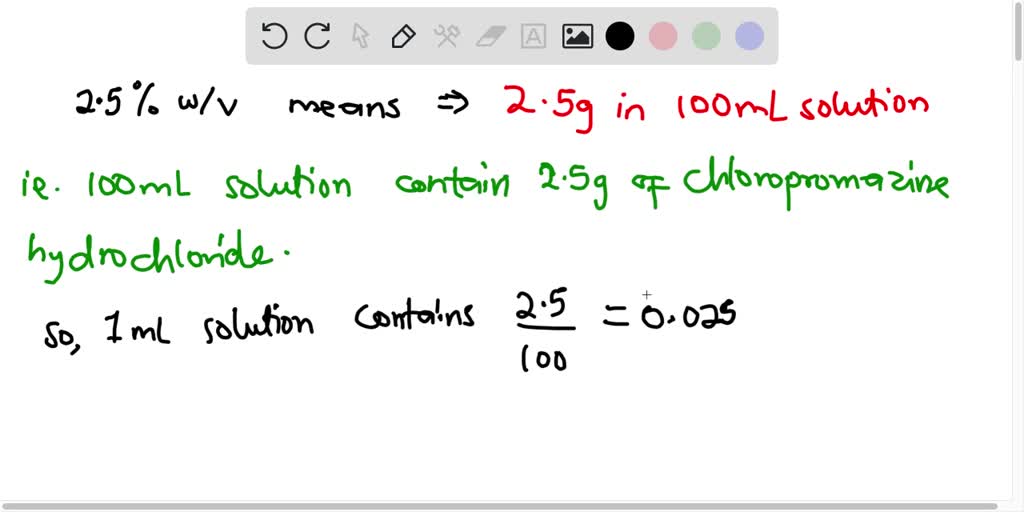 2.5% w/v means ⇒ 2.5g in 100mL solution
ie. 100mL solution contain 2.5g of chloropromazine
hydrochloride.
so, 1mL solution contains 2.5/100 = 0.025